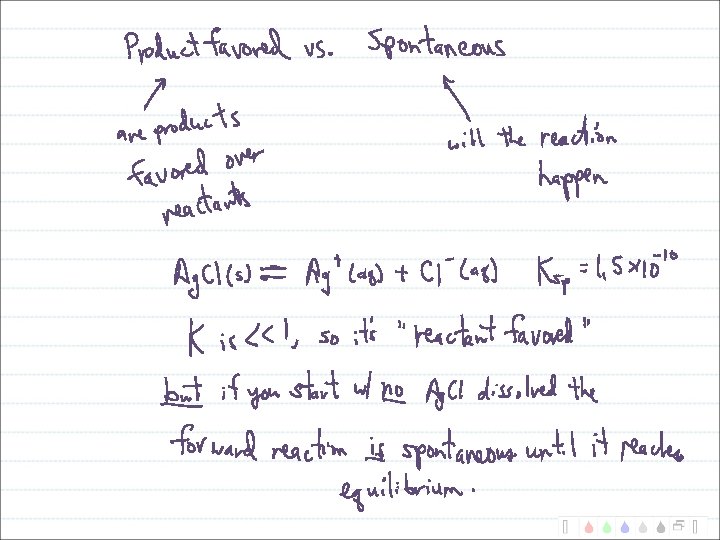 Product favored vs. Spontaneous
are products
favored over
reactants
will the reaction
happen
AgCl(s) ⇌ Ag⁺(aq) + Cl⁻(aq) Ksp = 1.5×10⁻¹⁰
K is <<1, so it's "reactant favored"
but if you start w/ no AgCl dissolved the
forward reaction is spontaneous until it reaches
equilibrium.